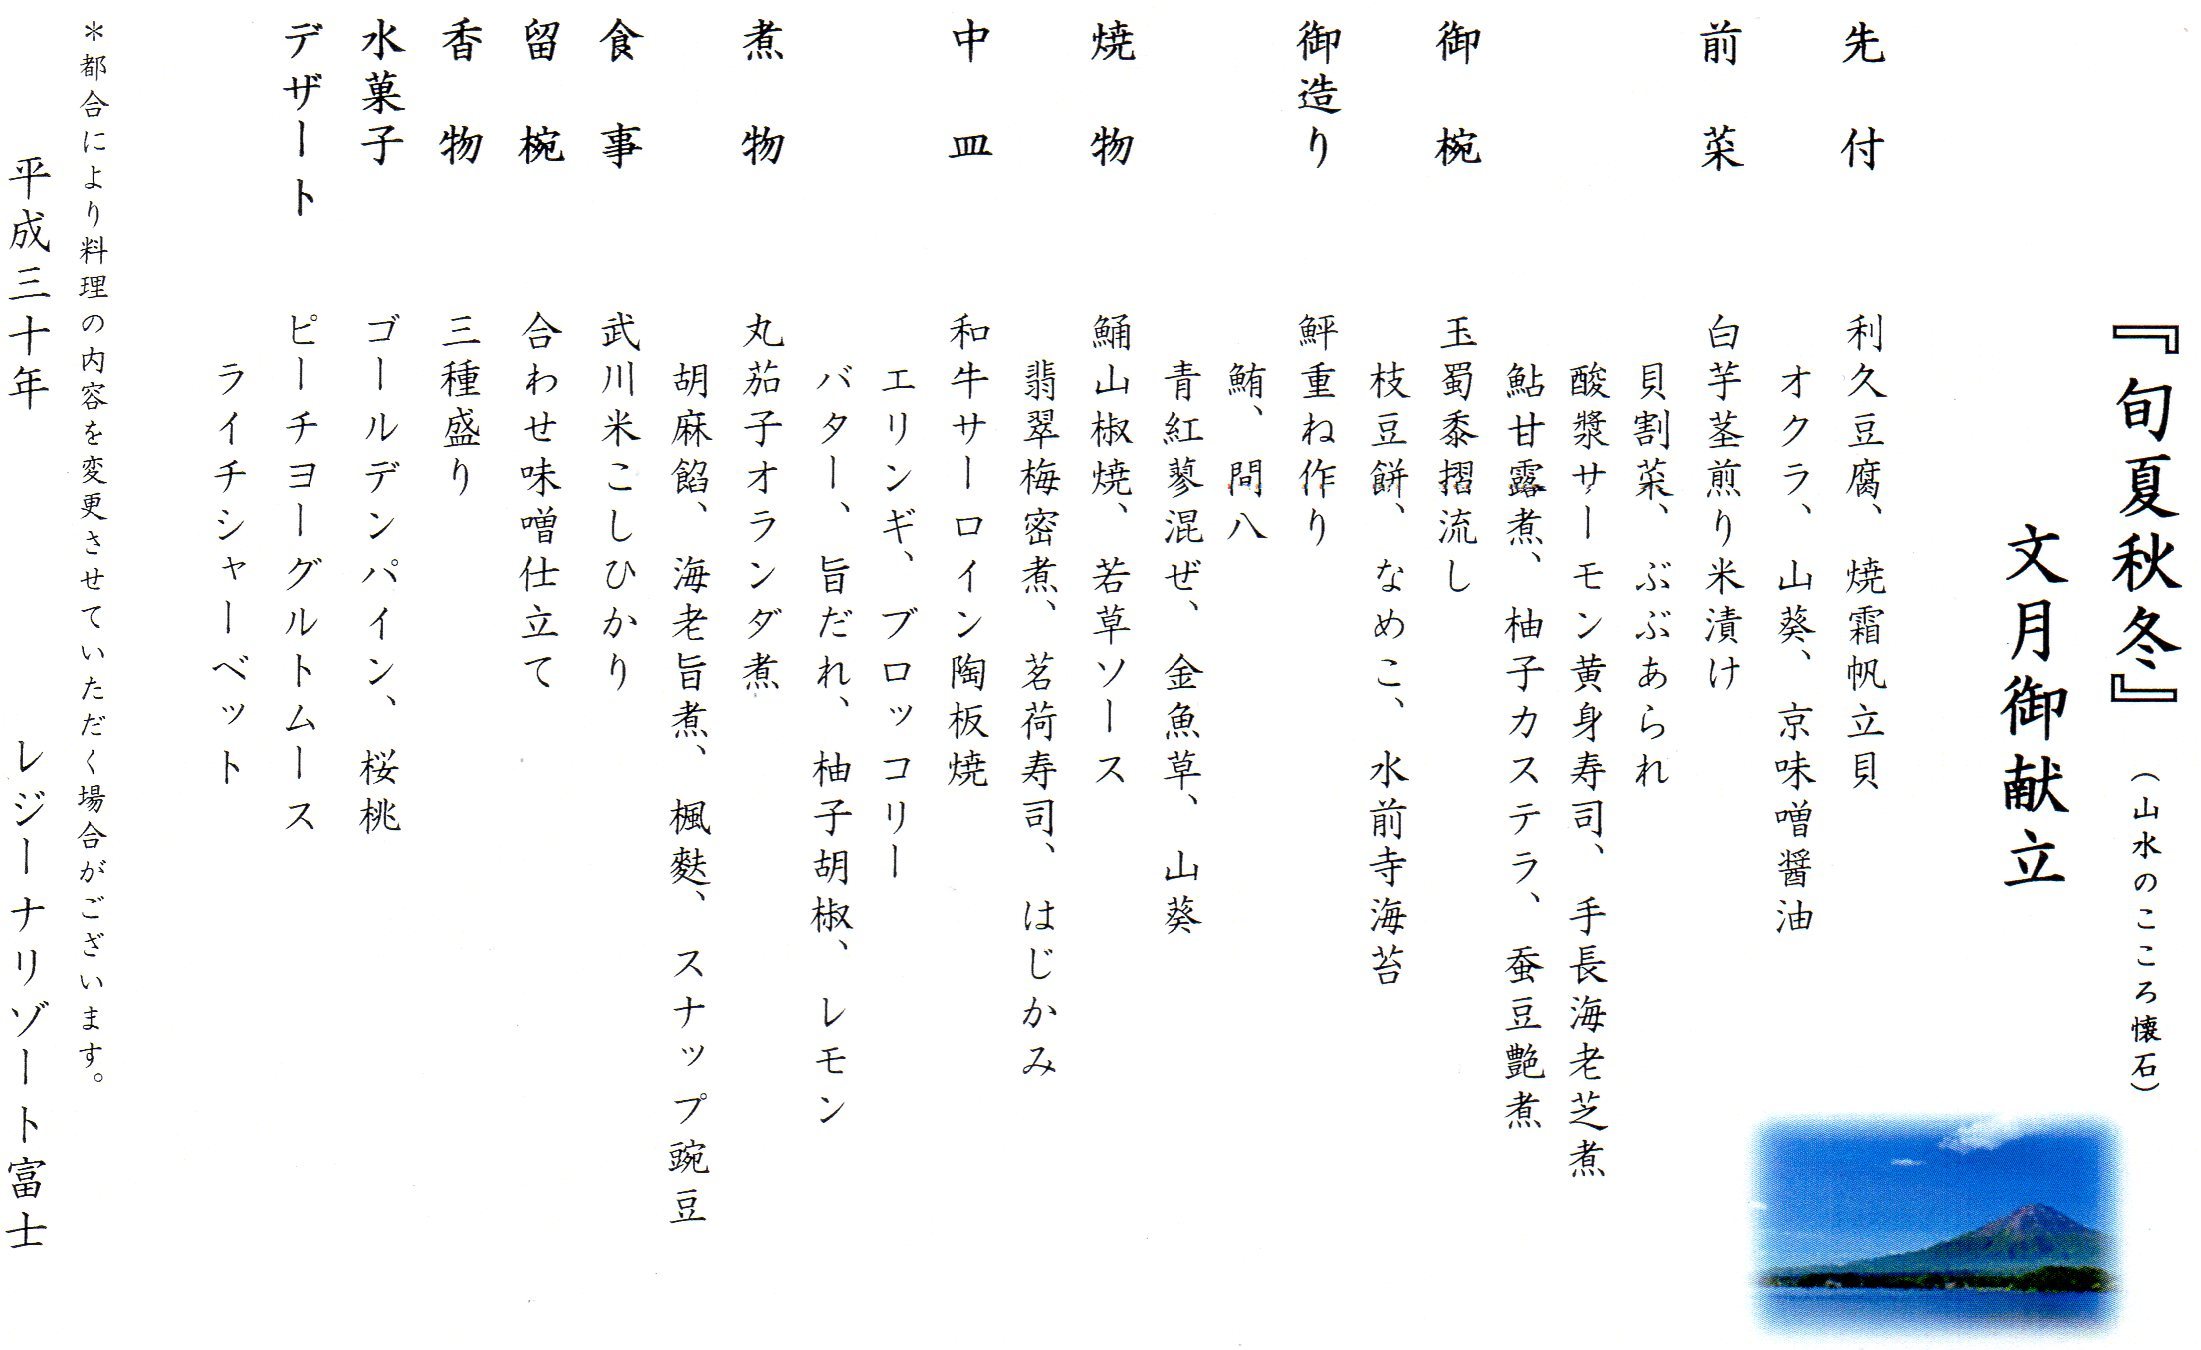 『旬夏秋冬』（山水のこころ懐石）
文月御献立
先付　利久豆腐、焼霜帆立貝
オクラ、山葵、京味噌醤油
前菜　白芋茎煎り米漬け
貝割菜、ぶぶあられ
酸漿サーモン黄身寿司、手長海老芝煮
鮎甘露煮、柚子カステラ、蚕豆艶煮
御椀　玉蜀黍摺流し
枝豆餅、なめこ、水前寺海苔
御造り　鮃重ね作り
鮪、間八
青紅蓼混ぜ、金魚草、山葵
焼物　鯒山椒焼、若草ソース
翡翠梅密煮、茗荷寿司、はじかみ
中皿　和牛サーロイン陶板焼
エリンギ、ブロッコリー
バター、旨だれ、柚子胡椒、レモン
煮物　丸茄子オランダ煮
胡麻餡、海老旨煮、楓麩、スナップ豌豆
食事　武川米こしひかり
留椀　合わせ味噌仕立て
香物　三種盛り
水菓子　ゴールデンパイン、桜桃
デザート　ピーチヨーグルトムース
ライチシャーベット
＊都合により料理の内容を変更させていただく場合がございます。
平成三十年　レジーナリゾート富士